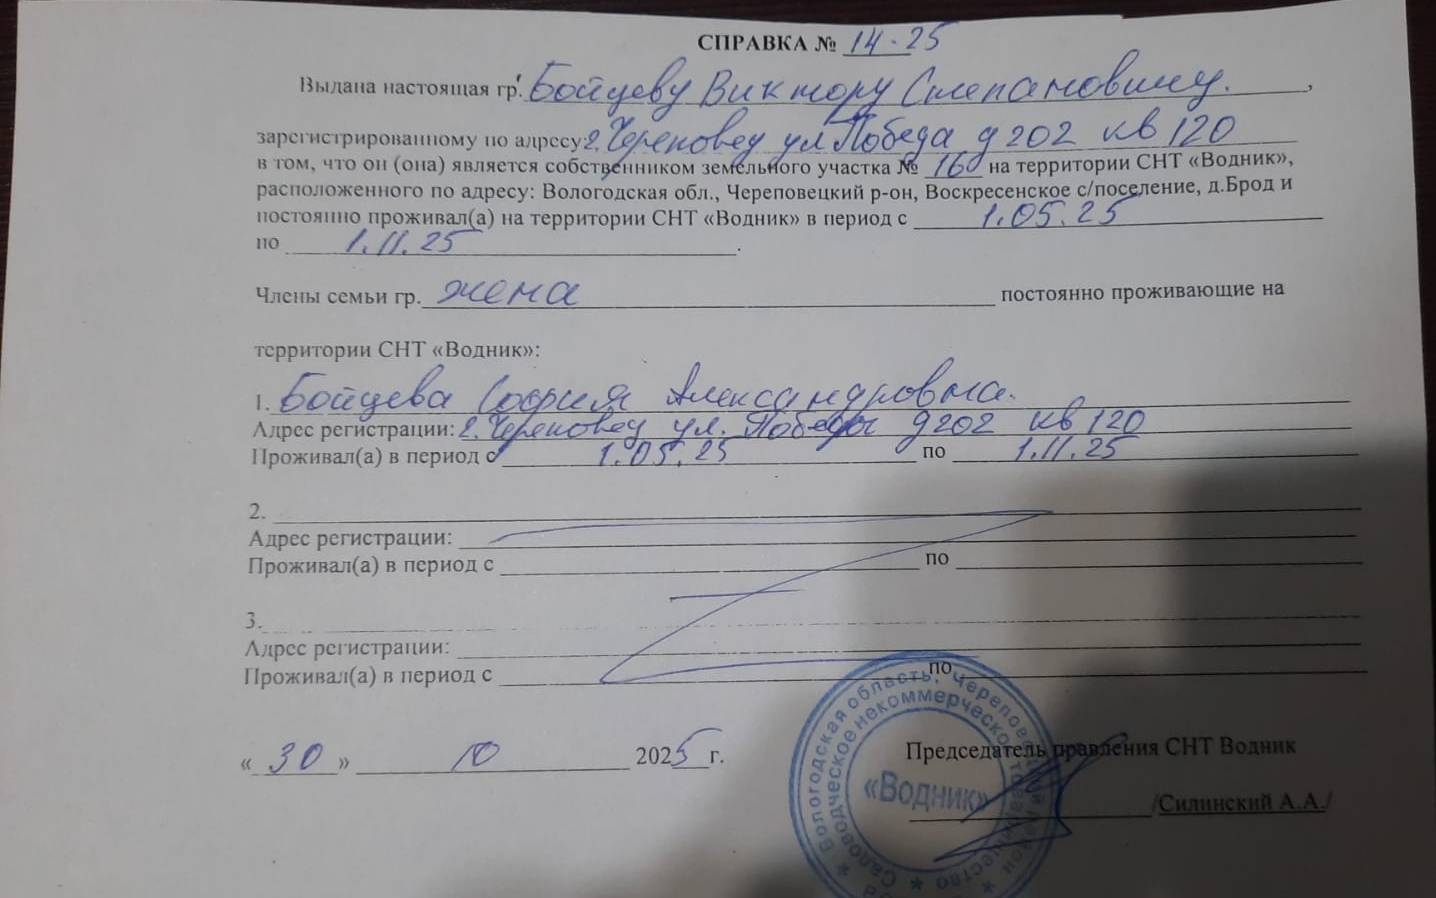 СПРАВКА № 14-25
Выдана настоящая гр. Бойцеву Виктору Степановичу.,
зарегистрированному по адресу: г. Череповец ул Победа д 202 кв 120
в том, что он (она) является собственником земельного участка № 160 на территории СНТ «Водник»,
расположенного по адресу: Вологодская обл., Череповецкий р-он, Воскресенское с/поселение, д.Брод и
постоянно проживал(а) на территории СНТ «Водник» в период с 1.05.25
по 1.11.25.
Члены семьи гр. жена постоянно проживающие на
территории СНТ «Водник»:
1. Бойцева София Александровна.
Адрес регистрации: г. Череповец ул. Победы д 202 кв 120
Проживал(а) в период с 1.05.25 по 1.11.25
2.
Адрес регистрации:
Проживал(а) в период с по
3.
Адрес регистрации:
Проживал(а) в период с по
«30» 10 2025 г.
Председатель правления СНТ Водник
/Силинский А.А./
Вологодская область, Череповецкий район
Садоводческое некоммерческое товарищество
«Водник»